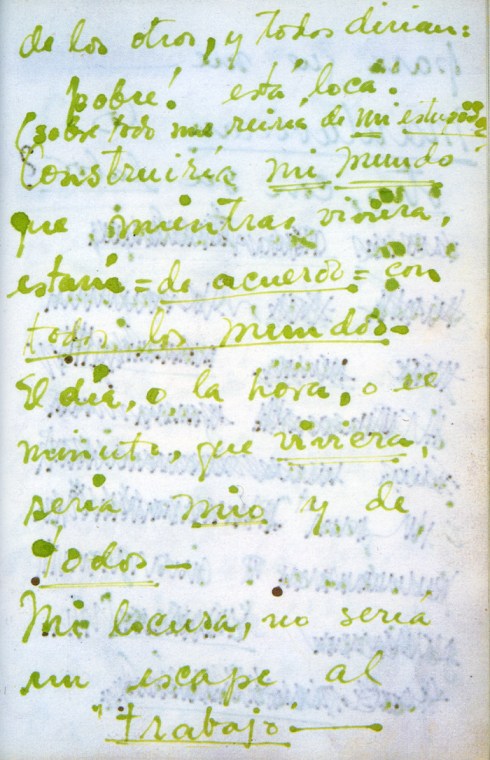 de los otros, y todos dirian:
pobre! está loca.
(sobre todo me reiria de mi estupidez
Construiría mi mundo
que mientras viviera,
estaría = de acuerdo = con
todos los mundos.
El día, o la hora, o el
minuto, que viviera,
sería mio y de
todos —
Mi locura, no sería
un escape al
"trabajo —